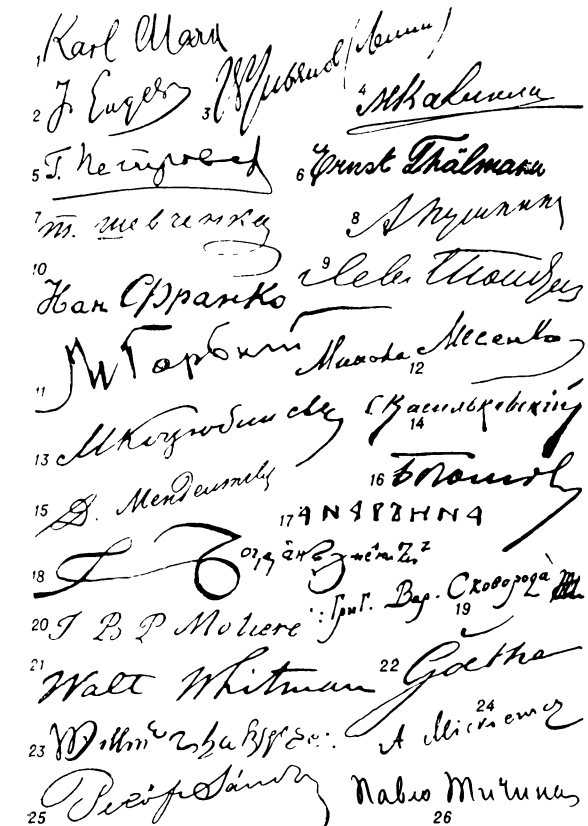 1 Karl Marx
2 F. Engels
3 В Ульянов (Ленин)
4 М Калинин
5 Г. Петровский
6 Ernst Thälmann
7 т. шевченко
8 А Пушкин
9 Лев Толстой
10 Иван Франко
11 М Горький
12 Микола Лисенко
13 М Коцюбинський
14 С. Васильківський
15 Д. Менделеев
16
17
18
19 Григ. Вар. Сковорода
20 J B P Moliere
21 Walt Whitman
22 Goethe
23
24 A Mickiewicz
25 Petőfi Sándor
26 Павло Тичина